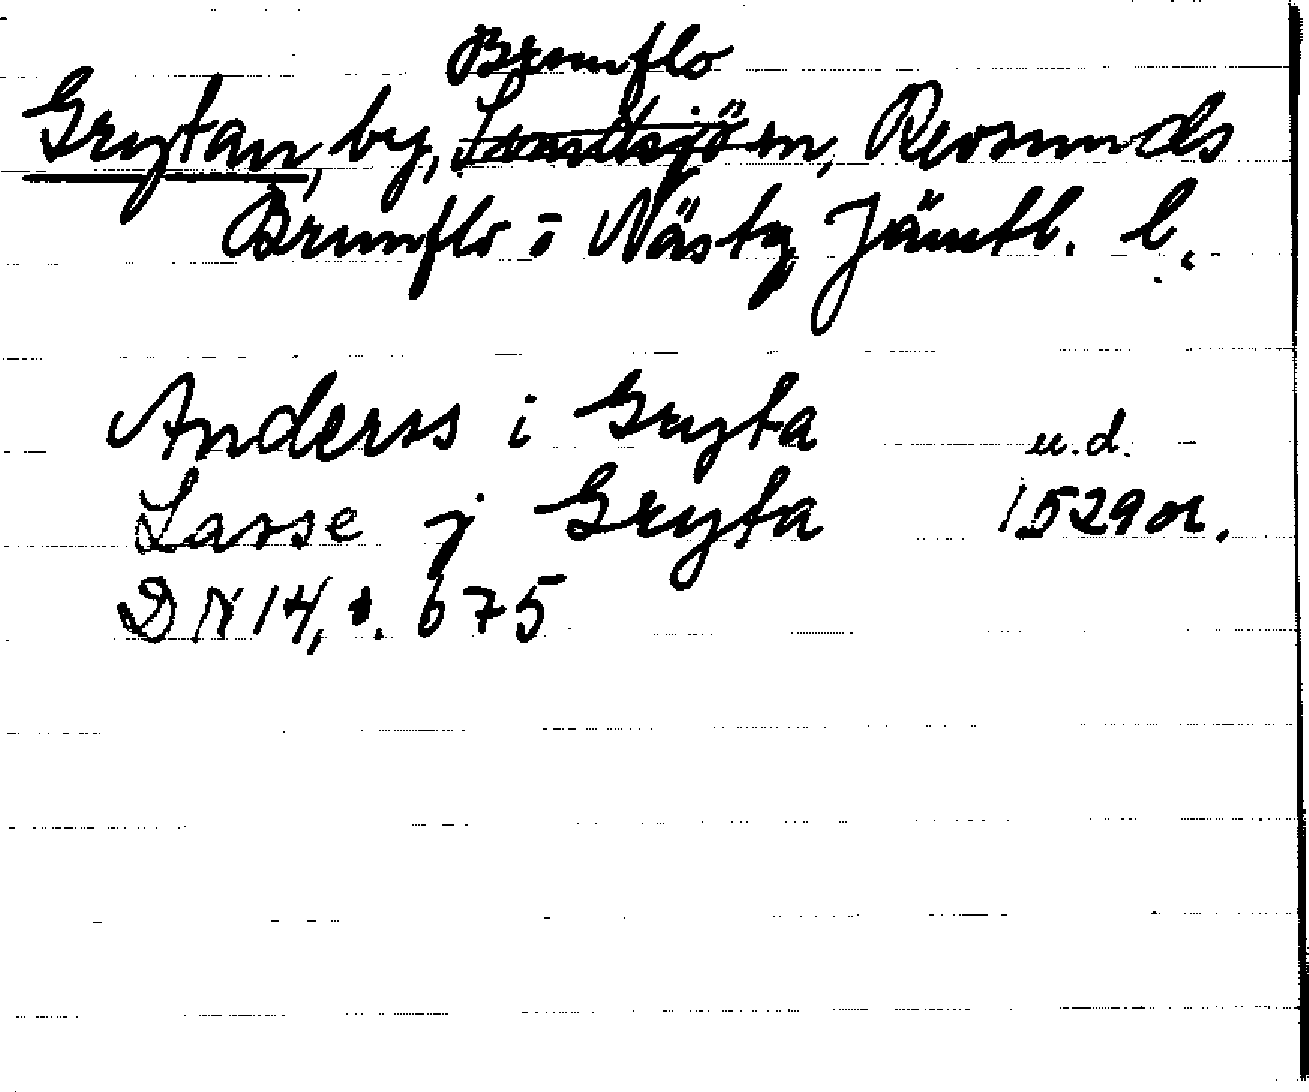 Brunflo
Grytan, by, Sundsjö sn, Revsunds
Brunflo o Näs tg Jämtl. l.
Anderss i Gryta u.d.
Lasse j Gryta 1529 or.
DN 14, s. 675